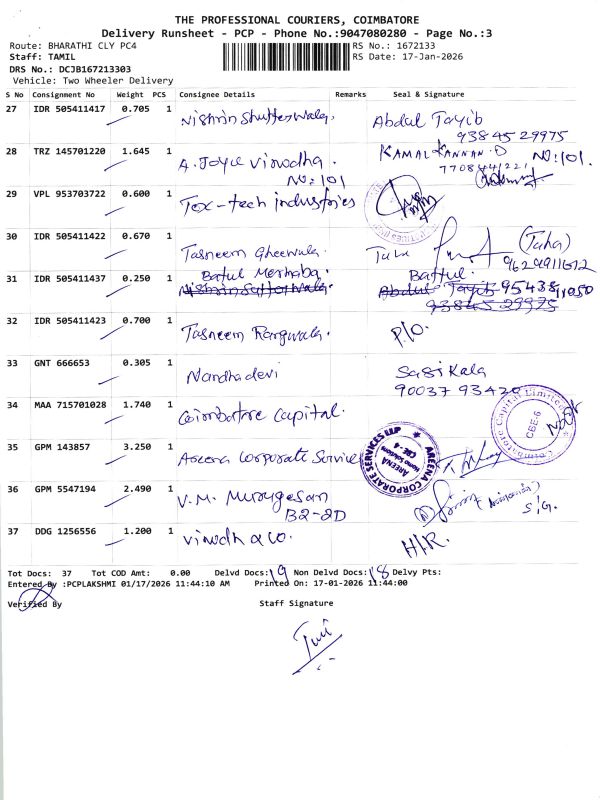 THE PROFESSIONAL COURIERS, COIMBATORE
Delivery Runsheet - PCP - Phone No.:9047080280 - Page No.:3
Route: BHARATHI CLY PC4 RS No.: 1672133
Staff: TAMIL RS Date: 17-Jan-2026
DRS No.: DCJB167213303
Vehicle: Two Wheeler Delivery
S No Consignment No Weight PCS Consignee Details Remarks Seal & Signature
27 IDR 505411417 0.705 1 Nishrin Shutterwala. Abdul Tayib
93845 29975
28 TRZ 145701220 1.645 1 A. Joyce Vinodha. KAMAL KANNAN.D NO:101.
NO:101
29 VPL 953703722 0.600 1 Tex-tech industries
30 IDR 505411422 0.670 1 Tasneem Gheewala. Taha (Taha)
9629911672
31 IDR 505411437 0.250 1 Batul Merhaba. Battul.
Abdul Tayib 95438
93845 29975
32 IDR 505411423 0.700 1 Tasneem Rangwala. P/O.
33 GNT 666653 0.305 1 Nandhadevi Sasikala
90037 93420
34 MAA 715701028 1.740 1 Coimbatore Capital.
Coimbatore Capital Limited
CBE-6
35 GPM 143857 3.250 1 Areena Corporate Service
AREENA CORPORATE SERVICES LLP
CBE-4
36 GPM 5547194 2.490 1 V.M. Murugesan S/G.
B2-2D
37 DDG 1256556 1.200 1 Vinodh & Co. H/R.
Tot Docs: 37 Tot COD Amt: 0.00 Delvd Docs: 19 Non Delvd Docs: 18 Delvy Pts:
Entered By :PCPLAKSHMI 01/17/2026 11:44:10 AM Printed On: 17-01-2026 11:44:00
Verified By Staff Signature